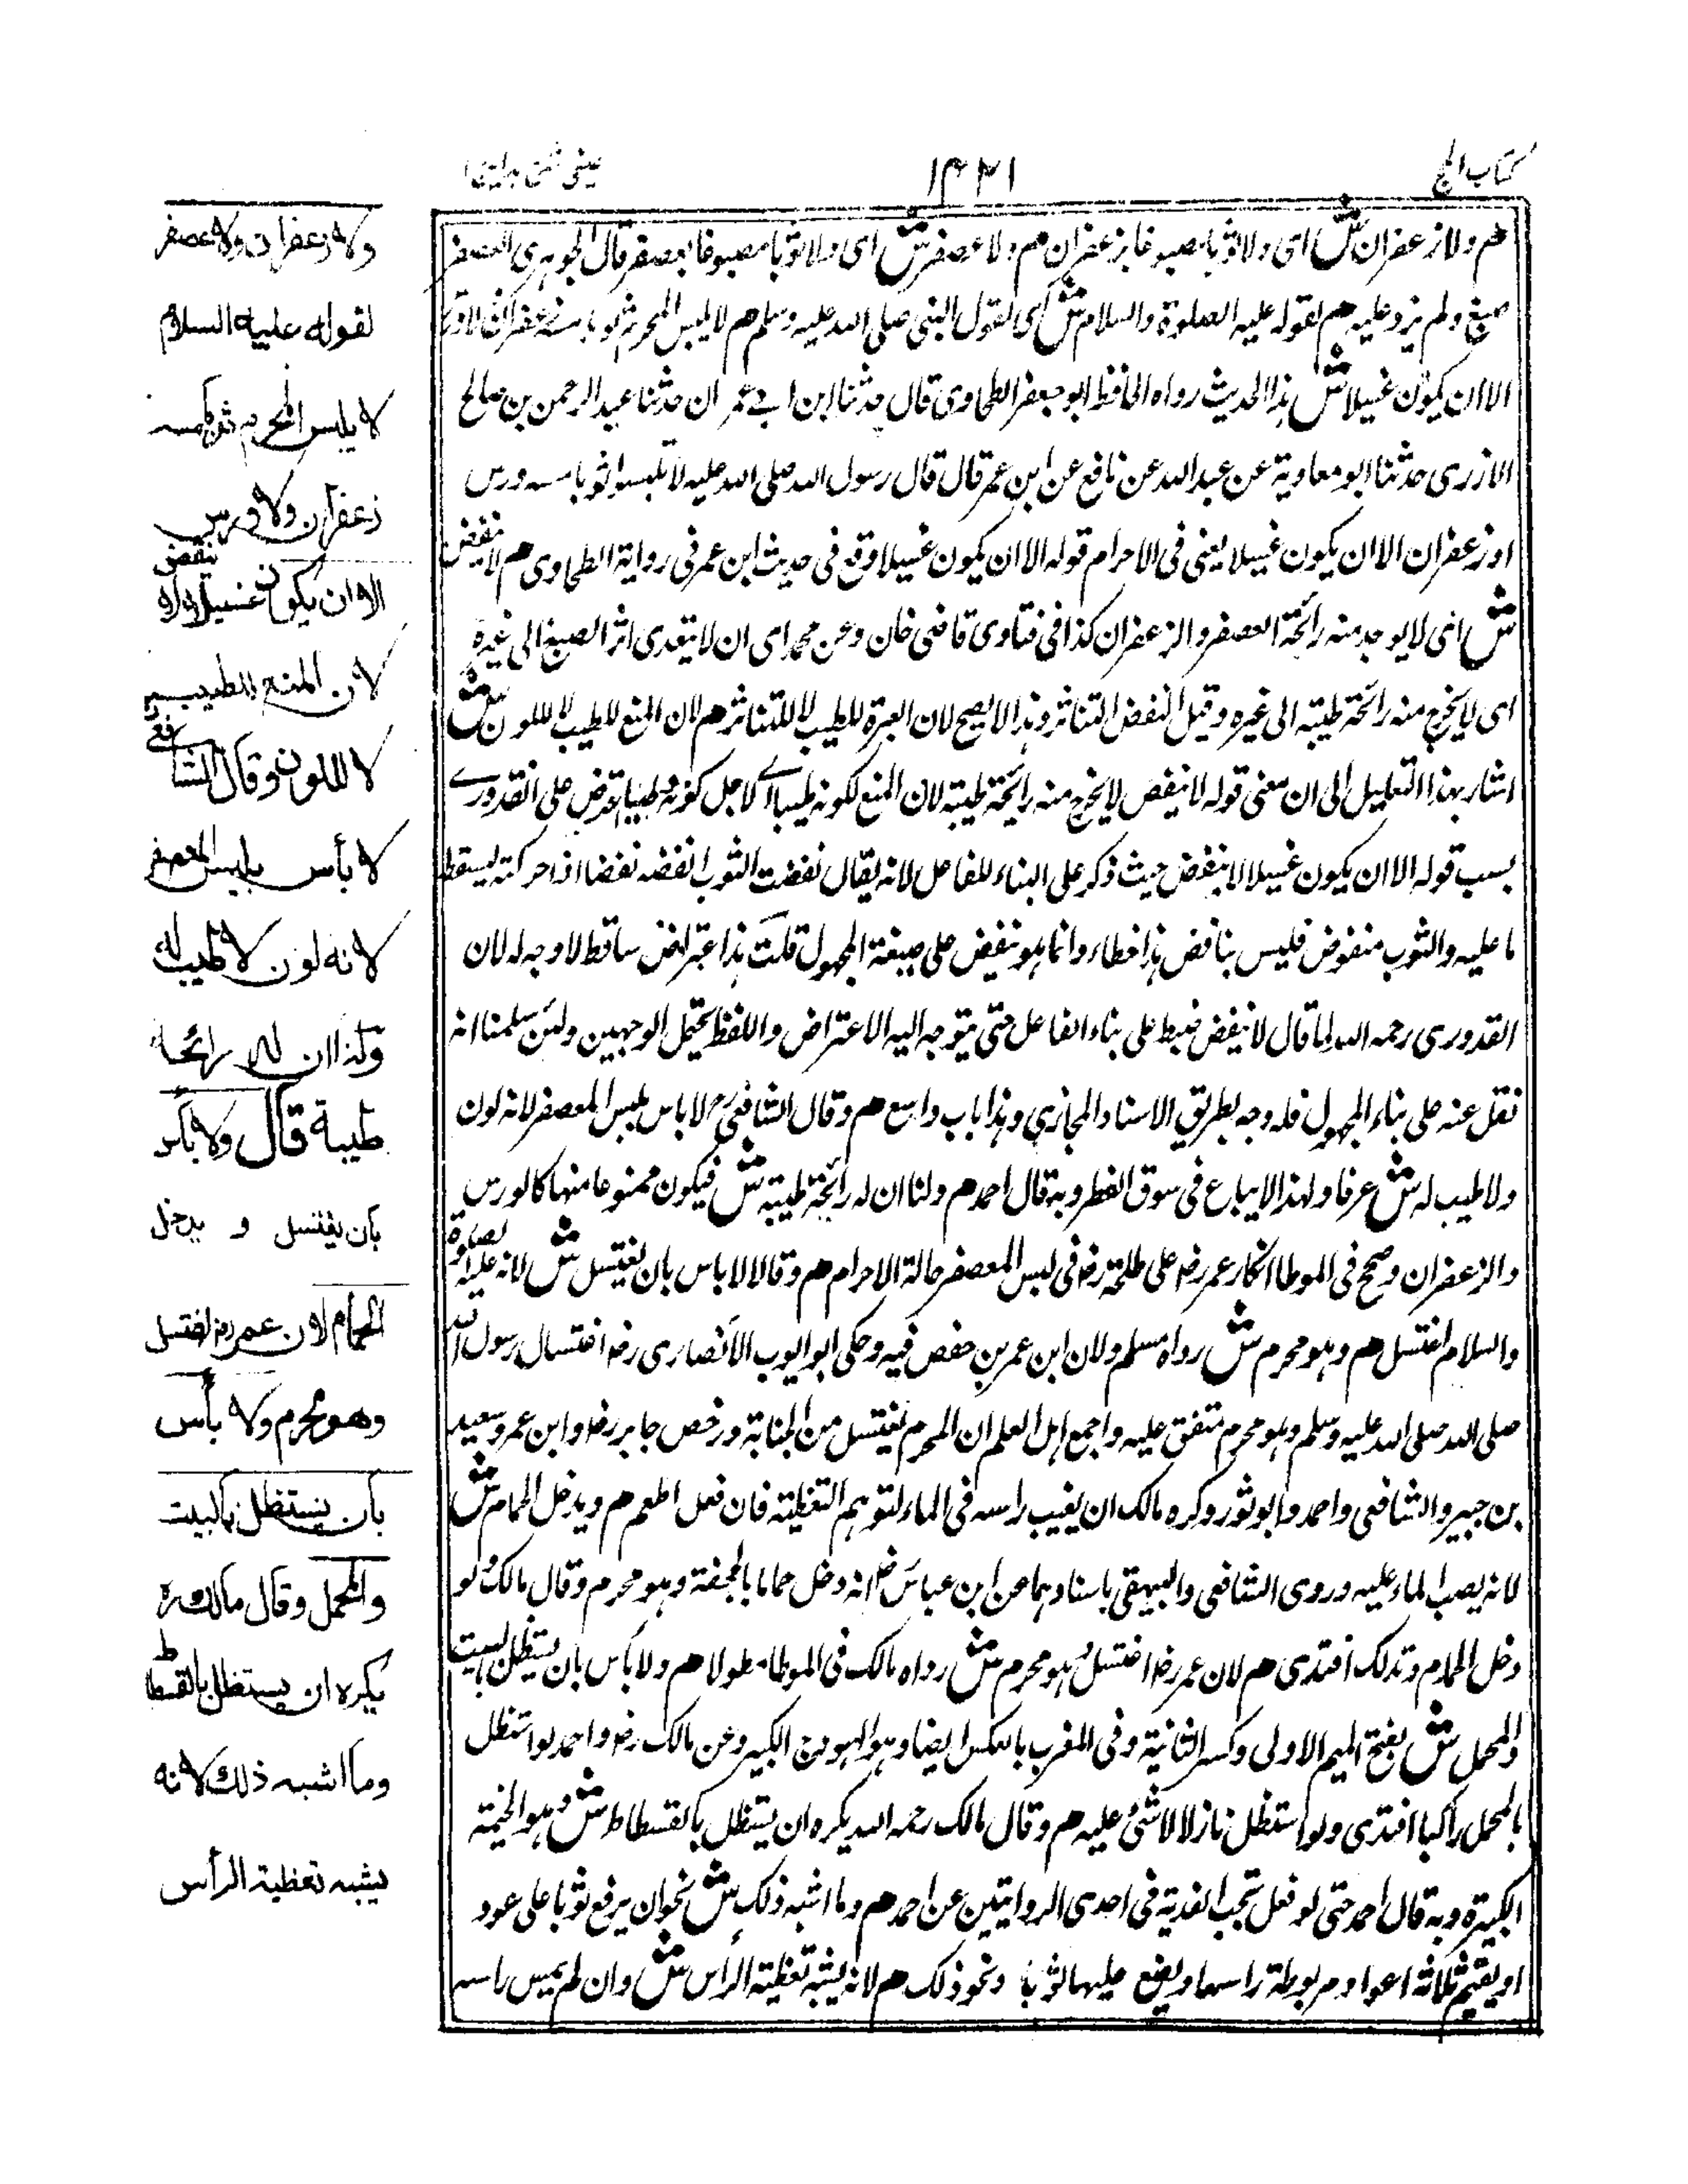 كتاب الحج
١٤٢١
عيني شرح هداية ج ١
هم ولا زعفران ش اى ولا ثوبا مصبوغا بزعفران هم ولا عصفر ش اى ولا ثوبا مصبوغا بعصفر قال الجوهرى العصفر
صبغ ولم يزد عليه هم لقوله عليه الصلوة والسلام ش اى لقول النبى صلى الله عليه وسلم هم لا يلبس المحرم ثوبا مسه زعفران لا ورس
الا ان يكون غسيلا ش هذا الحديث رواه الحافظ ابو جعفر الطحاوى قال حدثنا ابن ابى عمران حدثنا عبد الرحمن بن صالح
الازرى حدثنا ابو معاوية عن عبد الله عن نافع عن ابن عمر قال قال رسول الله صلى الله عليه لا تلبسوا ثوبا مسه ورس
او زعفران الا ان يكون غسيلا يعنى فى الاحرام قوله الا ان يكون غسيلا وقع فى حديث ابن عمر فى رواية الطحاوى هم لا ينفض
ش اى لا يوجد منه رائحة العصفر والزعفران كذا فى فتاوى قاضى خان وعن محمد اى ان لا يتعدى اثر الصبغ الى غيره
اى لا يخرج منه رائحة طيبة الى غيره وقيل النفض التناثر وهذا لا يصح لان العبرة للطيب لا للتناثر هم لان المنع للطيب لا للون ش
اشار بهذا التعليل الى ان معنى قوله لا ينفض لا يخرج منه رائحة طيبة لان المنع لكونه طيبا اے لاجل كونه طيبا اعترض على القدورے
بسبب قوله الا ان يكون غسيلا لا ينفض حيث ذكر على البناء للفاعل لانه يقال نفضت الثوب انفضه نفضا اذا حركته ليسقط
ما عليه والثوب منفوض فليس بنافض هذا خطاء وانما هو ينفض على صيغة المجهول قلت هذا اعتراض ساقط لا وجه له لان
القدورى رحمه الله لما قال لا ينفض ضبط على بناء الفاعل حتى يتوجه اليه الاعتراض واللفظ يحتمل الوجهين ولئن سلمنا انه
نقل عنه على بناء المجهول فله وجه بطريق الاسناد المجازي وهذا باب واسع هم وقال الشافعى رح لا باس بلبس المعصفر لانه لون
ولا طيب له ش عرفا ولهذا لا يباع فى سوق العطر وبه قال احمد هم ولنا ان له رائحة طيبة ش فيكون ممنوعا منها كالورس
والزعفران وصح فى الموطا انكار عمر رض على طلحة رض فى لبس المعصفر حالة الاحرام هم وقالا لا باس بان يغتسل ش لانه عليه الصلوة
والسلام اغتسل هم وهو محرم ش رواه مسلم ولان ابن عمر بن حفص فيه وحكى ابو ايوب الانصارى رض اغتسال رسول الله
صلى الله صلى الله عليه وسلم وهو محرم متفق عليه واجمع اهل العلم ان المحرم يغتسل من الجنابة ورخص جابر رض وابن عمر وسعيد
بن جبير والشافعى واحمد وابو ثور وكره مالك ان يغيب راسه فى الماء لتوهم التغطية فان فعل اطعم هم ويدخل الحمام ش
لانه يصب الماء عليه وروى الشافعى والبيهقى باسنادهما عن ابن عباس رض انه دخل حماما بالجحفة وهو محرم وقال مالك لو
دخل الحمام وتدلك افتدى هم لان عمر رض اغتسل وهو محرم ش رواه مالك فى الموطا مطولا هم ولا باس بان يستظل بالبيت
والمحمل ش بفتح الميم الاولى وكسر الثانية وفى المغرب بالعكس ايضا وهو الهودج الكبير وعن مالك رض واحمد لو استظل
بالمحمل راكبا افتدى ولو استظل نازلا لا شئ عليه هم وقال مالك رحمه الله يكره ان يستظل بالفسطاط ش وهو الخيمة
الكبيرة وبه قال احمد حتى لو فعل تجب الفدية فى احدى الروايتين عن احمد هم وما اشبه ذلك ش نحو ان يرفع ثوبا على عود
او يقيم ثلاثة اعواد مربوطة راسها ويضع عليها ثوبا ونحو ذلك هم لانه يشبه تغطية الرأس ش وان لم يمس راسه
ولا زعفران ولا عصفر
لقوله عليه السلام
لا يلبس المحرم ثوبا مسه
زعفران ولا ورس
الا ان يكون غسيلا لا ينفض
لان المنع للطيب
لا للون وقال الشافعے
لا بأس بلبس المعصفر
لانه لون لا طيب له
ولنا ان له رائحة
طيبة قال ولا بأس
بان يغتسل و يدخل
الحمام لان عمر رض اغتسل
وهو محرم ولا بأس
بان يستظل بالبيت
والمحمل وقال مالك رح
يكره ان يستظل بالفسطاط
وما اشبه ذلك لانه
يشبه تغطية الرأس